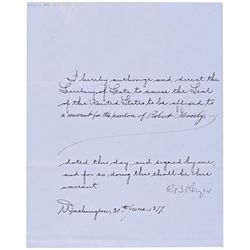 I hereby authorize and direct the
Secretary of State to cause the Seal
of the United States to be affixed to
a warrant for the pardon of Robert Mosely.
dated this day, and signed by me,
and for so doing this shall be his
warrant
R.B. Hayes
Washington, 30th June, 1877.